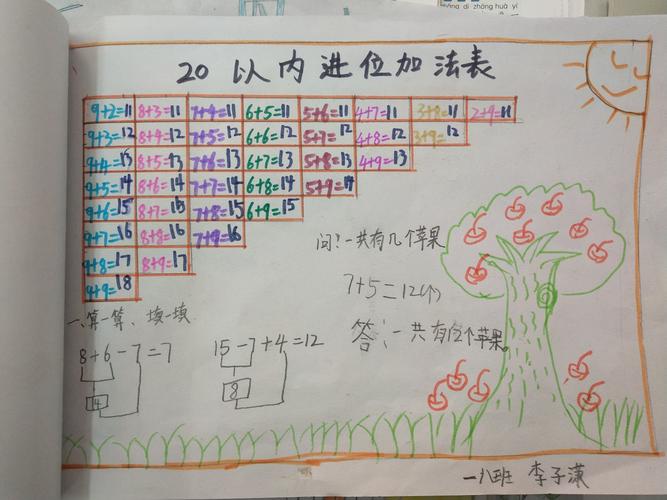 dì zhōng huà yí
20 以内进位加法表
9+2=11 8+3=11 7+4=11 6+5=11 5+6=11 4+7=11 3+8=11 2+9=11
9+3=12 8+4=12 7+5=12 6+6=12 5+7=12 4+8=12 3+9=12
9+4=13 8+5=13 7+6=13 6+7=13 5+8=13 4+9=13
9+5=14 8+6=14 7+7=14 6+8=14 5+9=14
9+6=15 8+7=15 7+8=15 6+9=15
9+7=16 8+8=16 7+9=16
9+8=17 8+9=17
9+9=18
问?一共有几个苹果
7+5=12(个)
答:一共有12个苹果。
一、算一算、填一填
8+6-7=7 15-7+4=12
14 8
一八班 李子潇